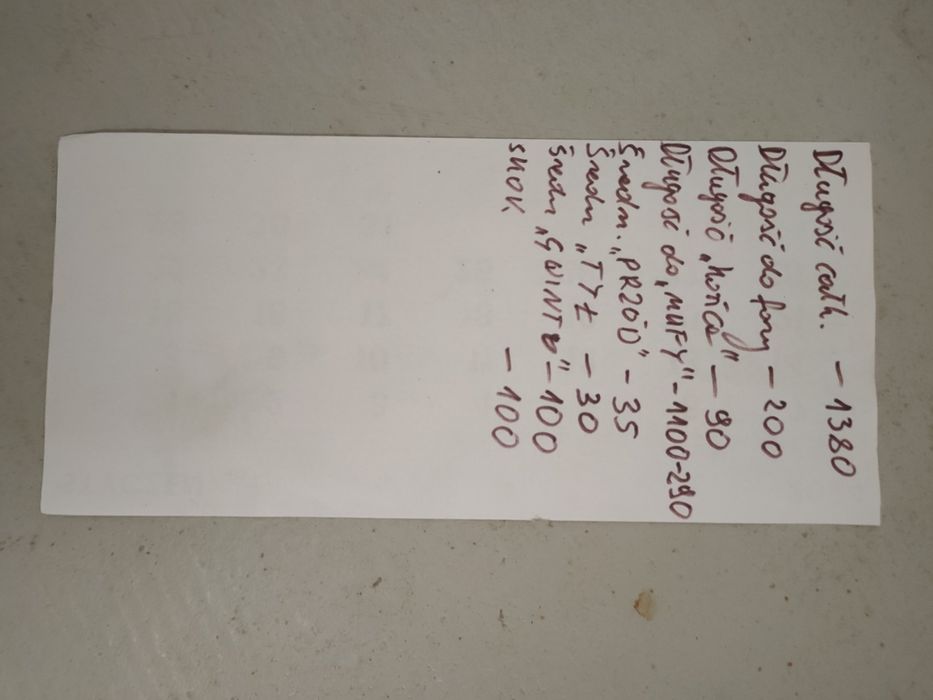 Długość całk. – 1380
Długość do fazy – 200
Długość „końca” – 90
Długość do „MUFY” – 1100-290
Średn. „PRZÓD” – 35
Średn „TYŁ – 30
Średn „GWINTU” – 100
SKOK – 100